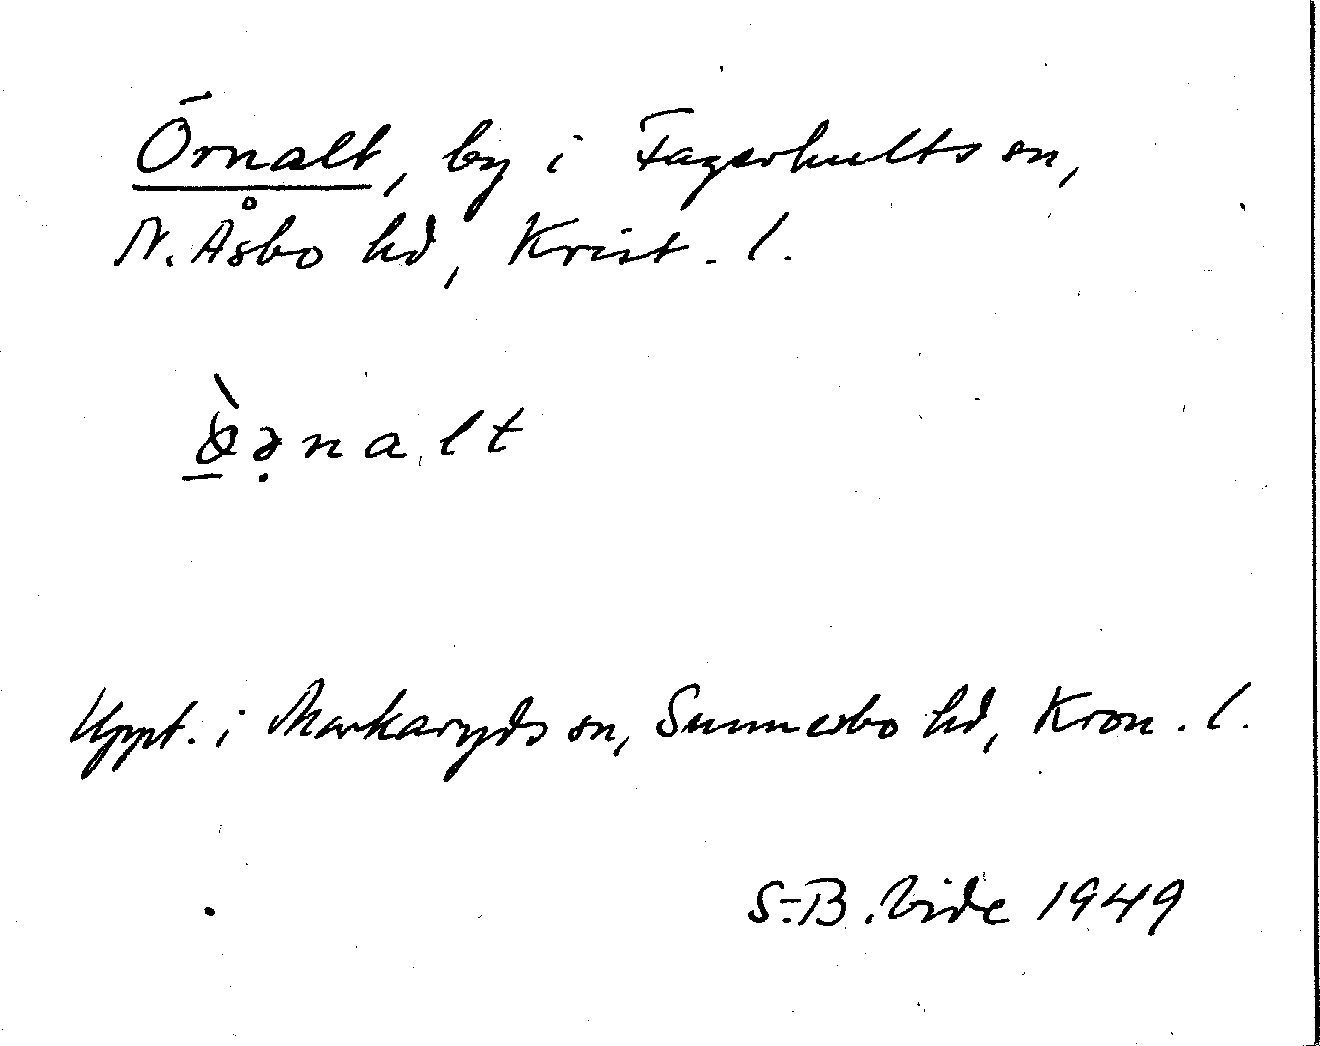 Örnalt, by i Fagerhults sn,
N. Åsbo hd, Krist. l.
ə̣nalt
Uppt. i Markaryds sn, Sunnerbo hd, Kron. l.
S.-B. Vide 1949